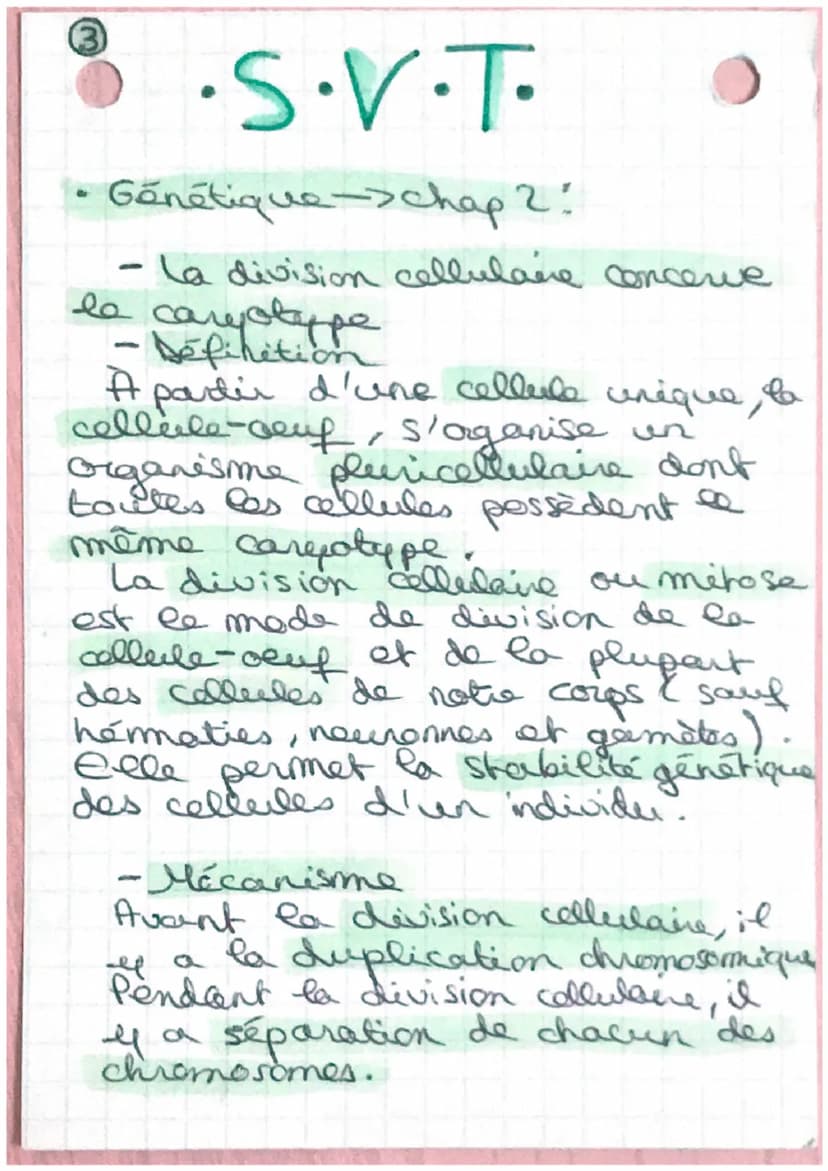 3
.S.V.T.
• Génétique → chap 2:
- La division cellulaire concerve
le caryotype
- Définition
À partir d'une cellule unique, la
cellule-oeuf, s'organise un
organisme pluricellulaire dont
toutes les cellules possèdent le
même caryotype.
La division cellulaire ou mitose
est le mode de division de la
cellule-oeuf et de la plupart
des cellules de notre corps (sauf
hématies, neuronnes et gamètes).
Elle permet la stabilité génétique
des cellules d'un individu.
- Mécanisme
Avant la division cellulaire, il
y a la duplication chromosomique
Pendant la division cellulaire, il
y a séparation de chacun des
chromosomes.